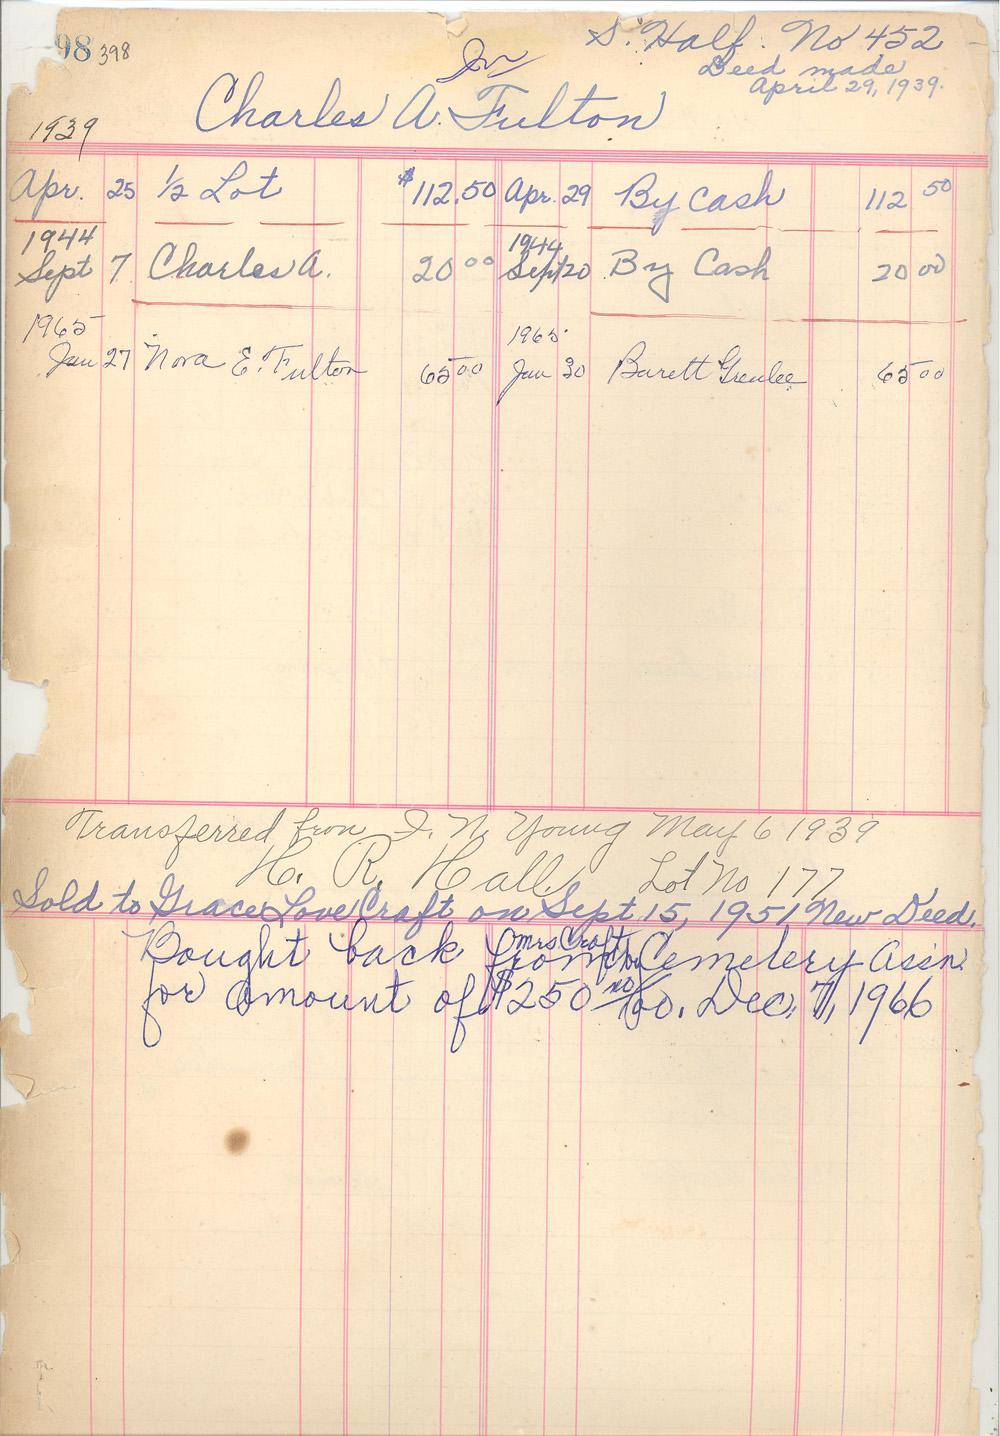 98 398
S. Half. No 452
Deed made
April 29, 1939.
Charles A. Fulton
1939
Apr. 25 ½ Lot $112.50 Apr. 29 By Cash 112 50
1944 1944
Sept 7 Charles A. 20 00 Sept 20 By Cash 20 00
1965 1965
Jan 27 Nora E. Fulton 65 00 Jan 30 Barett Greenlee 65 00
Transferred from I. N. Young May 6 1939
H. R. Hall Lot No 177
Sold to Grace Love Craft on Sept 15, 1951 New Deed.
Bought back from Mrs Craft by Cemetery Ass'n
for amount of $250 no/00. Dec. 7, 1966